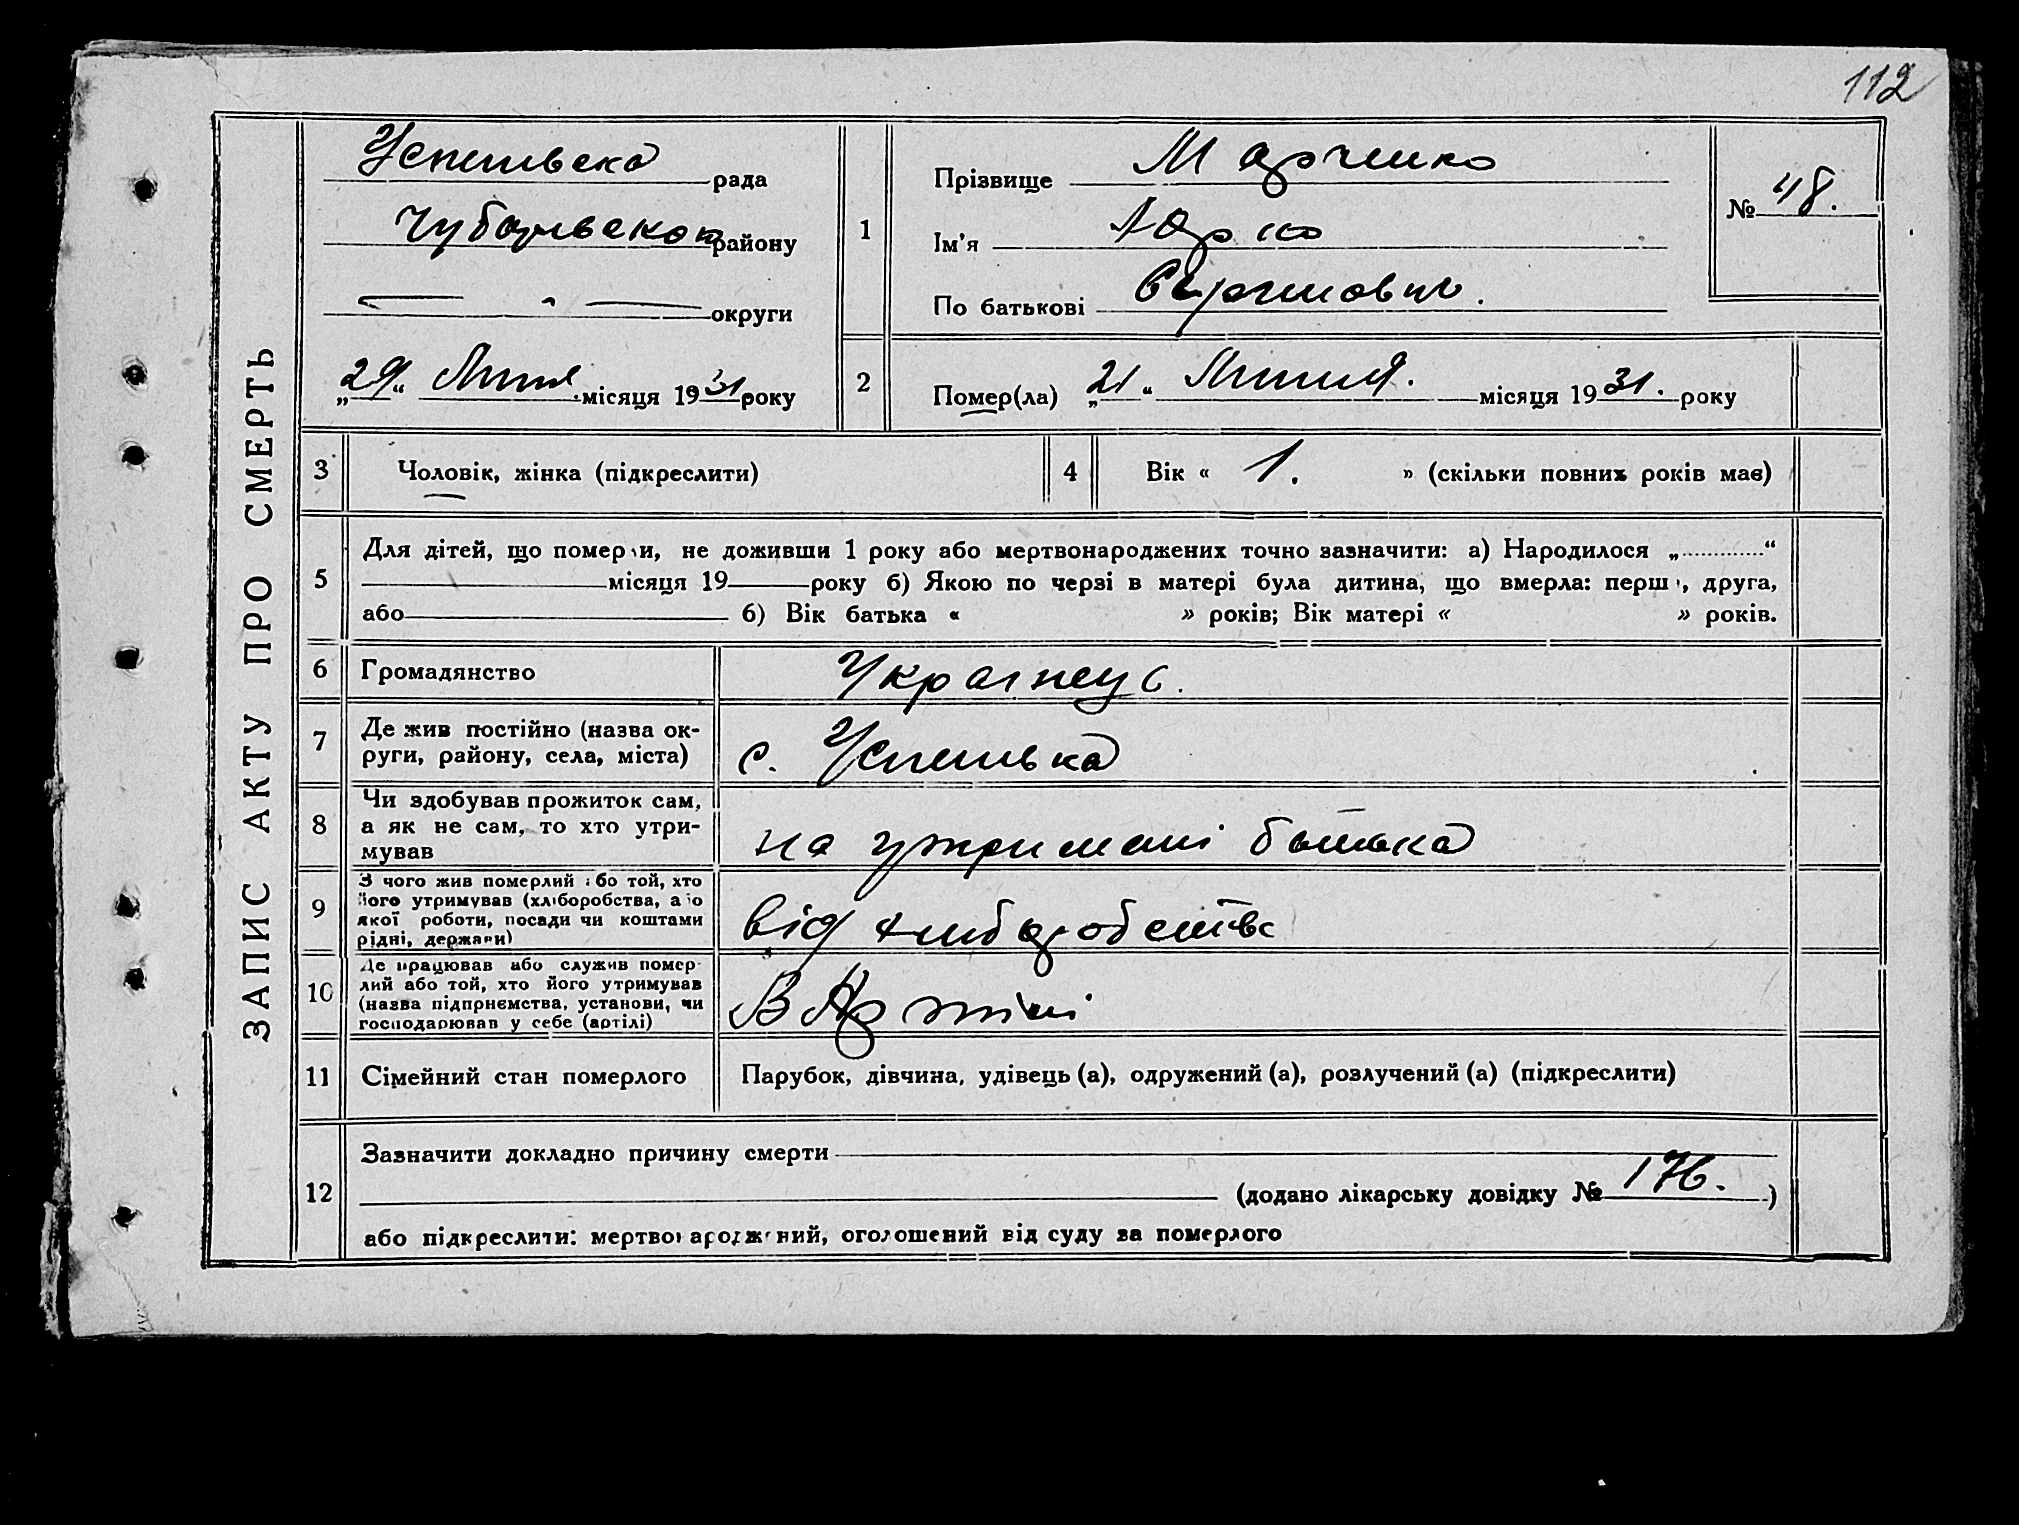 112
ЗАПИС АКТУ ПРО СМЕРТЬ
Успенівська рада
Чубарівского району
округи
„29“ Липня місяця 1931 року
1
Прізвище Марченко
Ім'я Юрко
По батькові Сергійович.
№ 48.
2
Помер(ла) „21“ Липня. місяця 1931. року
3 Чоловік, жінка (підкреслити)
4 Вік « 1. » (скільки повних років має)
5
Для дітей, що померли, не доживши 1 року або мертвонароджених точно зазначити: а) Народилося „ “
місяця 19 року б) Якою по черзі в матері була дитина, що вмерла: перша, друга,
або б) Вік батька « » років; Вік матері « » років.
6 Громадянство Українец.
7 Де жив постійно (назва ок-
руги, району, села, міста) с. Успенівка
8 Чи здобував прожиток сам,
а як не сам, то хто утри-
мував на утримані батька
9 З чого жив померлий або той, хто
його утримував (хліборобства, або
якої роботи, посади чи коштами
рідні, держави) від хліборобства
10 Де працював або служив помер-
лий або той, хто його утримував
(назва підприємства, установи, чи
господарював у себе (артілі) в Артілі
11 Сімейний стан померлого Парубок, дівчина, удівець (а), одружений (а), розлучений (а) (підкреслити)
12
Зазначити докладно причину смерти
(додано лікарську довідку № 176.)
або підкреслити: мертвонароджений, оголошений від суду за померлого